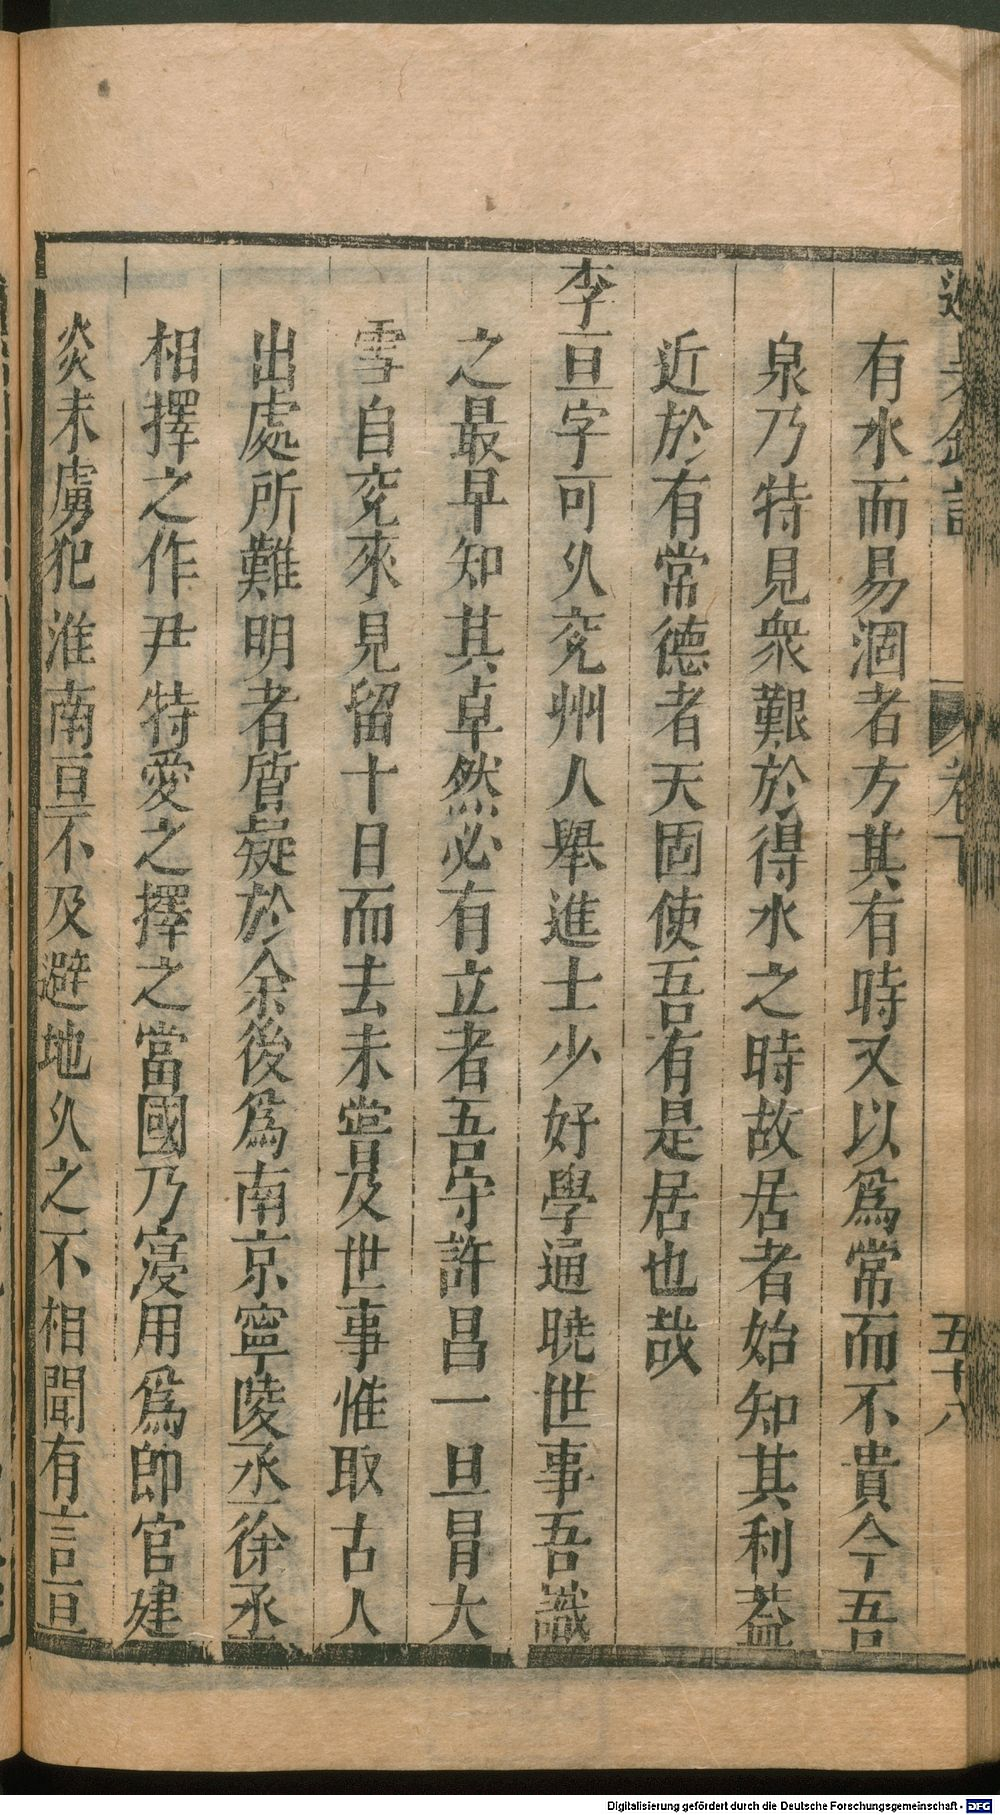 避暑錄話 卷下 五十八
有水而易涸者方其有時又以爲常而不貴今吾
泉乃特見衆艱於得水之時故居者始知其利蓋
近於有常德者天固使吾有是居也哉
李亘字可乆兖州人舉進士少好學通曉世事吾識
之最早知其卓然必有立者吾守許昌一旦冐大
雪自兖來見留十日而去未嘗及世事惟取古人
出處所難明者質疑於余後爲南京寧陵丞徐丞
相擇之作尹特愛之擇之當國乃寖用爲郎官建
炎末虜犯淮南亘不及避地乆之不相聞有言亘
Digitalisierung gefördert durch die Deutsche Forschungsgemeinschaft - DFG